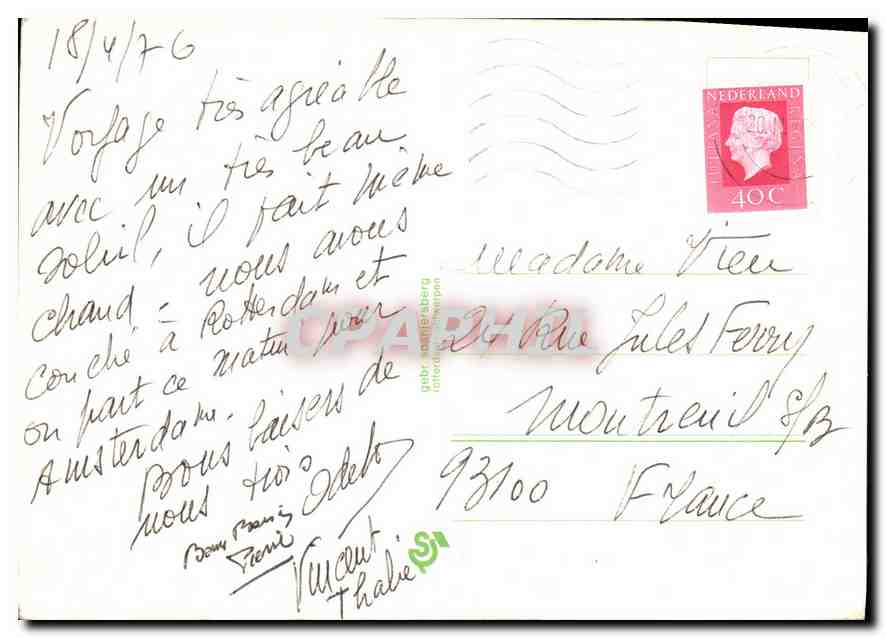 18/4/76
Voyage très agréable
avec un très beau
soleil, il fait même
chaud - nous avons
couché à Rotterdam et
on part ce matin pour
Amsterdam.
Bons baisers de
nous trois Odette
Bons Baisers
Pierre
Vincent
Thalie
NEDERLAND
JULIANA REGINA
40C
CPARHIL
gebr. spanjersberg
rotterdam antwerpen
Madame Vieu
24 Rue Jules Ferry
Montreuil s/B
93100 France